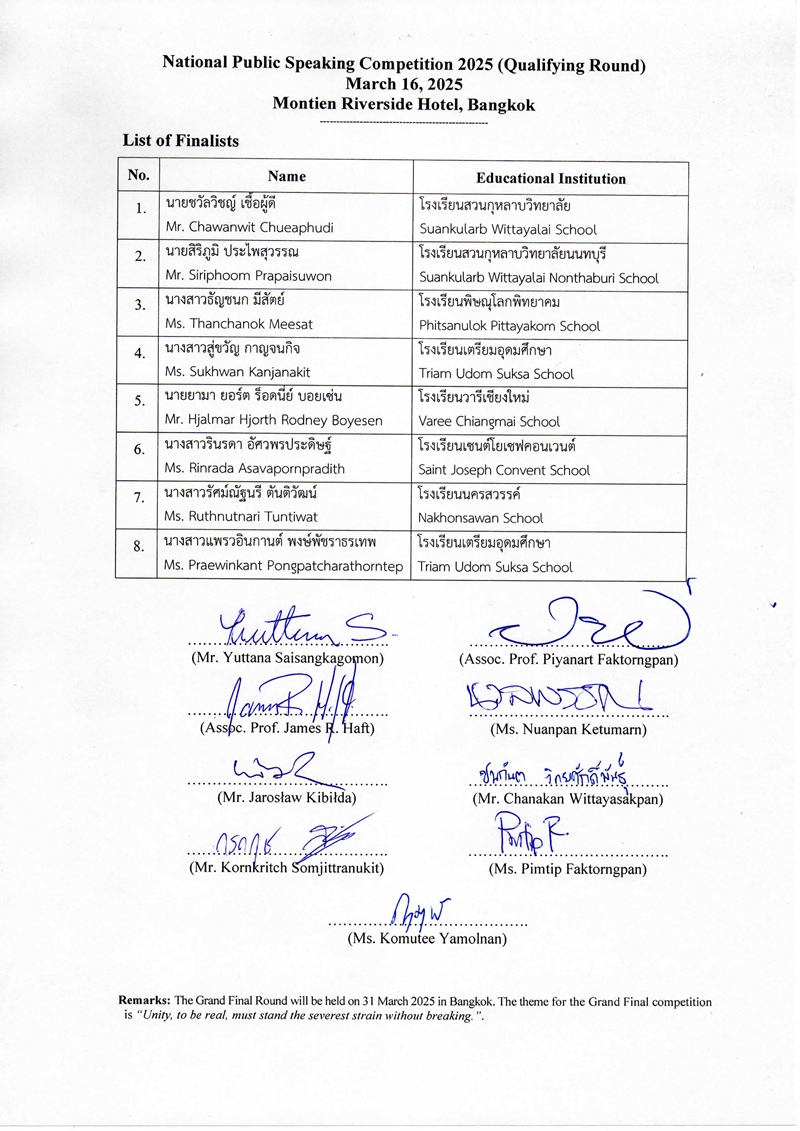 National Public Speaking Competition 2025 (Qualifying Round)
March 16, 2025
Montien Riverside Hotel, Bangkok
List of Finalists
No. Name Educational Institution
1. นายชวัลวิชญ์ เชื้อผู้ดี โรงเรียนสวนกุหลาบวิทยาลัย
Mr. Chawanwit Chueaphudi Suankularb Wittayalai School
2. นายสิริภูมิ ประไพสุวรรณ โรงเรียนสวนกุหลาบวิทยาลัยนนทบุรี
Mr. Siriphoom Prapaisuwon Suankularb Wittayalai Nonthaburi School
3. นางสาวธัญชนก มีสัตย์ โรงเรียนพิษณุโลกพิทยาคม
Ms. Thanchanok Meesat Phitsanulok Pittayakom School
4. นางสาวสู่ขวัญ กาญจนกิจ โรงเรียนเตรียมอุดมศึกษา
Ms. Sukhwan Kanjanakit Triam Udom Suksa School
5. นายยามา ยอร์ต ร็อดนี่ย์ บอยเซ่น โรงเรียนวารีเชียงใหม่
Mr. Hjalmar Hjorth Rodney Boyesen Varee Chiangmai School
6. นางสาวรินรดา อัศวพรประดิษฐ์ โรงเรียนเซนต์โยเซฟคอนเวนต์
Ms. Rinrada Asavapornpradith Saint Joseph Convent School
7. นางสาวรัศม์ณัฐนรี ตันติวัฒน์ โรงเรียนนครสวรรค์
Ms. Ruthnutnari Tuntiwat Nakhonsawan School
8. นางสาวแพรวอินกานต์ พงษ์พัชราธรเทพ โรงเรียนเตรียมอุดมศึกษา
Ms. Praewinkant Pongpatcharathorntep Triam Udom Suksa School
(Mr. Yuttana Saisangkagomon) (Assoc. Prof. Piyanart Faktorngpan)
(Assoc. Prof. James R. Haft) (Ms. Nuanpan Ketumarn)
ชนกันต วิทยศักดิ์พันธุ์
(Mr. Jarosław Kibiłda) (Mr. Chanakan Wittayasakpan)
Pimtip F.
(Mr. Kornkritch Somjittranukit) (Ms. Pimtip Faktorngpan)
(Ms. Komutee Yamolnan)
Remarks: The Grand Final Round will be held on 31 March 2025 in Bangkok. The theme for the Grand Final competition
is “Unity, to be real, must stand the severest strain without breaking.”.